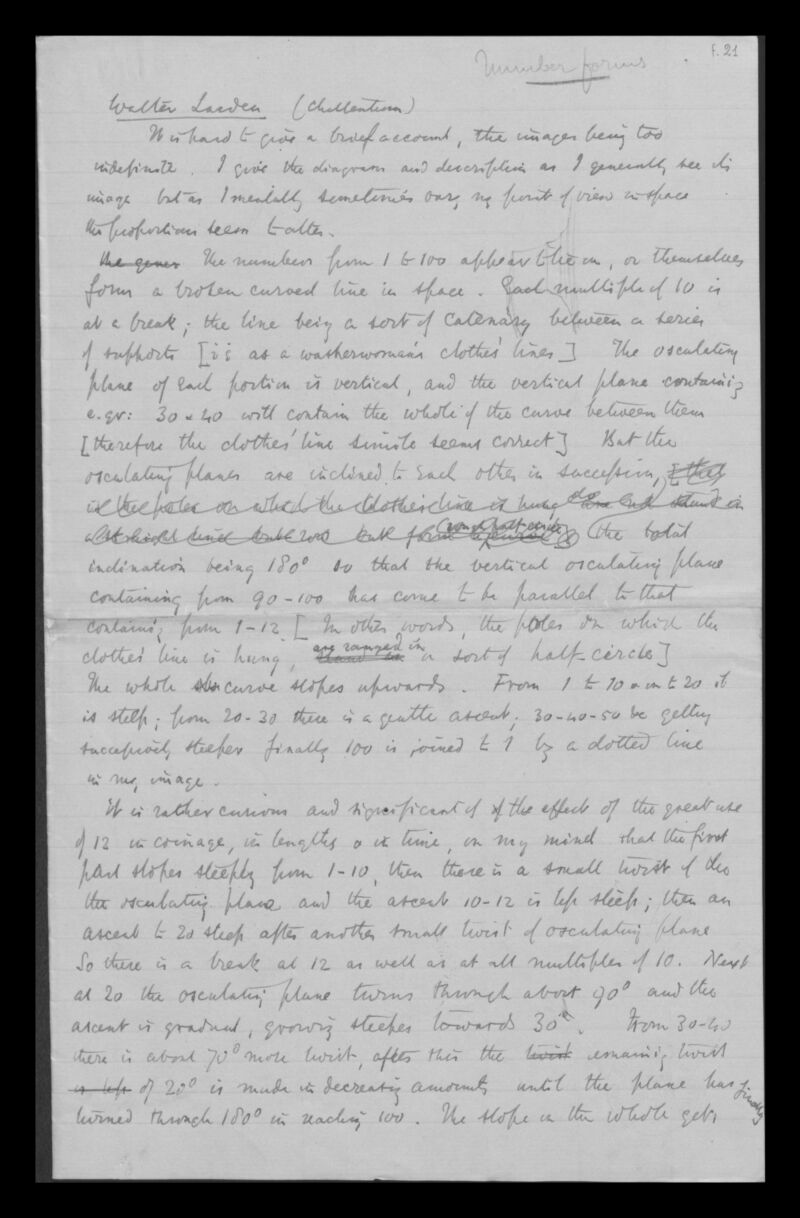 f. 21
Number forms
Walter Larden (Cheltenham)
It is hard to give a brief account, the images being too
indefinite. I give the diagram and description as I generally see its
image but as I mentally sometimes vary my point of view in space
the proportions seem to alter.
the gener The numbers from 1 to 100 appear to lie on, or themselves
form a broken curved line in space. Each multiple of 10 is
at a break; the line being a sort of catenary between a series
of supports [i.e. as a washerwoman's clothes' lines] The osculating
plane of each portion is vertical, and the vertical plane containing
e.gr: 30 & 40 will contain the whole of the curve between them
[therefore the clothes' line simile seems correct] But the
osculating planes are inclined to each other in succession, [that
is the poles on which the clothes' line is hung stand in
a straight line but the total
inclination being 180° so that the vertical osculating plane
containing from 90-100 has come to be parallel to that
containing from 1-12. [In other words, the poles on which the
clothes' line is hung, are ranged in stand in a sort of half-circle]
The whole curve slopes upwards. From 1 to 10 & on to 20 it
is steep; from 20-30 there is a gentle ascent; 30-40-50 &c getting
successively steeper finally 100 is joined to 1 by a dotted line
in my image.
It is rather curious and significant of the effect of the great use
of 12 in coinage, in lengths & in time, on my mind that the first
part slopes steeply from 1-10, then there is a small twist of the
the osculating plane and the ascent 10-12 is less steep; then an
ascent to 20 steep after another small twist of osculating plane
So there is a break at 12 as well as at all multiples of 10. Next
at 20 the osculating plane turns through about 90° and the
ascent is gradual, growing steeper towards 30. From 30-40
there is about 70° more twist, after this the twist remaining twist
is less of 20° is made in decreasing amounts until the plane has finally
turned through 180° in reaching 100. The slope on the whole gets